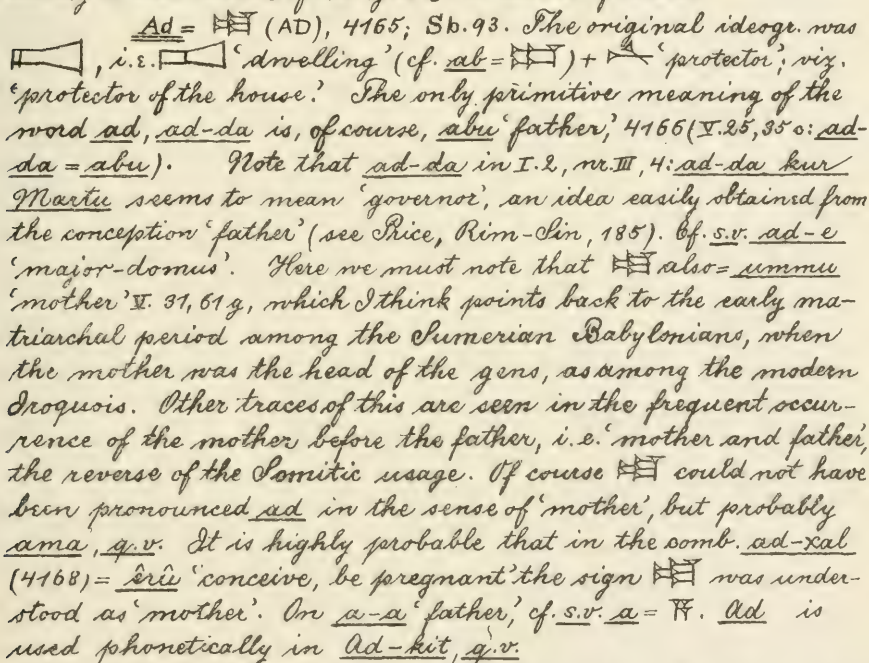 Ad = 𒀜 (AD), 4165; Sb. 93. The original ideogr. was
, i.e. 'dwelling' (cf. ab = 𒀊) + 'protector'; viz.
'protector of the house.' The only primitive meaning of the
word ad, ad-da is, of course, abu 'father,' 4166 (V. 25, 35 o: ad-
da = abu). Note that ad-da in I. 2, nr. III, 4: ad-da kur
Martu seems to mean 'governor', an idea easily obtained from
the conception 'father' (see Price, Rim-Sin, 185). Cf. s.v. ad-e
'major-domus'. Here we must note that 𒀜 also = ummu
'mother' V. 31, 61 g, which I think points back to the early ma-
triarchal period among the Sumerian Babylonians, when
the mother was the head of the gens, as among the modern
Iroquois. Other traces of this are seen in the frequent occur-
rence of the mother before the father, i.e. 'mother and father',
the reverse of the Semitic usage. Of course 𒀜 could not have
been pronounced ad in the sense of 'mother', but probably
ama, q.v. It is highly probable that in the comb. ad-xal
(4168) = êrû 'conceive, be pregnant' the sign 𒀜 was under-
stood as 'mother'. On a-a 'father,' cf. s.v. a = 𒀀. Ad is
used phonetically in Ad-kit, q.v.